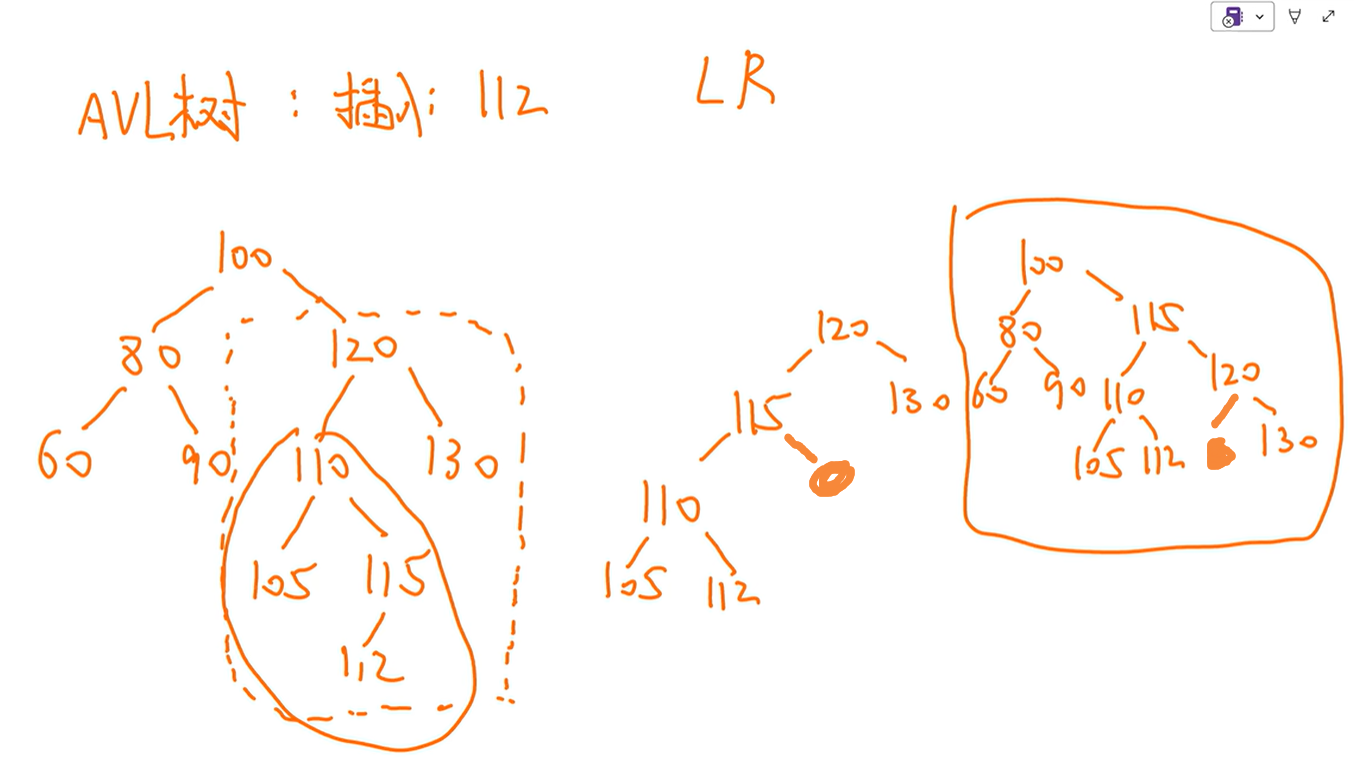 AVL树：插入：112
LR
100
80 120
60 90 110 130
105 115
112
120
115 130
110
105 112
100
80 115
60 90 110 120
105 112 130